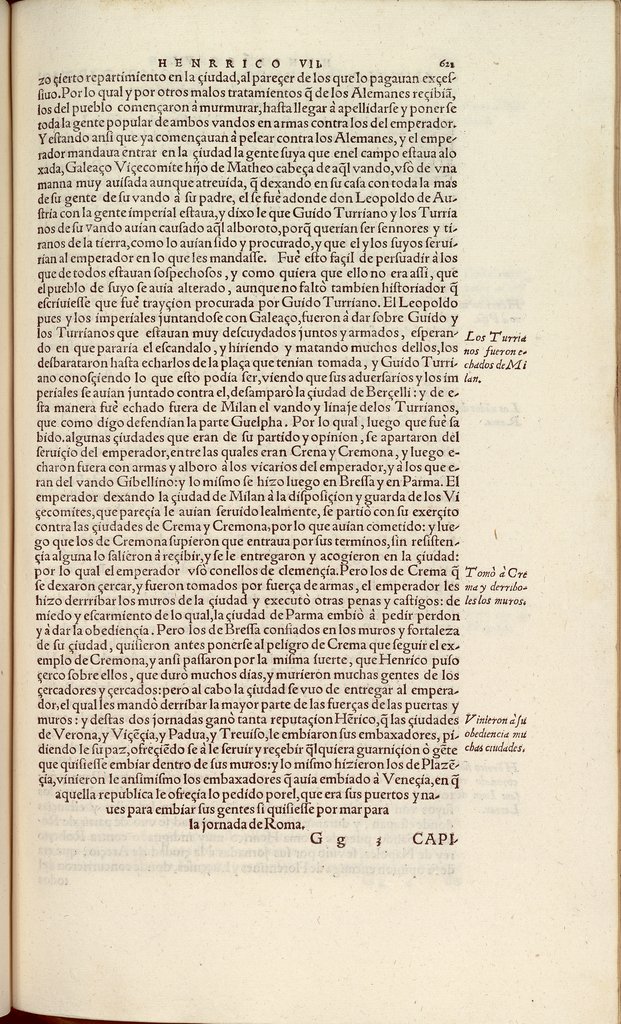 HENRRICO VII. 622
zo çierto repartimiento en la çiudad, al pareçer de los que lo pagauan exçes-
siuo. Por lo qual y por otros malos tratamientos q̃ de los Alemanes reçibiã,
los del pueblo començaron à murmurar, hasta llegar à apellidarse y ponerse
toda la gente popular de ambos vandos en armas contra los del emperador.
Y estando ansi que ya començauan à pelear contra los Alemanes, y el empe-
rador mandaua entrar en la çiudad la gente suya que enel campo estaua alo
xada, Galeaço Viçecomite hijo de Matheo cabeça de aq̃l vando, vsò de vna
manna muy auisada aunque atreuida, q̃ dexando en su casa con toda la mas
de su gente de su vando à su padre, el se fuè adonde don Leopoldo de Au-
stria con la gente imperial estaua, y dixo le que Guido Turriano y los Turria
nos de su vando auian causado aq̃l alboroto, porq̃ querian ser sennores y ti-
ranos de la tierra, como lo auian sido y procurado, y que el y los suyos serui-
rian al emperador en lo que les mandasse. Fuè esto façil de persuadir à los
que de todos estauan sospechosos, y como quiera que ello no era assi, que
el pueblo de suyo se auia alterado, aunque no faltò tambien historiador q̃
escriuiesse que fuè trayçion procurada por Guido Turriano. El Leopoldo
pues y los imperiales juntandose con Galeaço, fueron à dar sobre Guido y
los Turrianos que estauan muy descuydados juntos y armados, esperan-
do en que pararia el escandalo, y hiriendo y matando muchos dellos, los
desbarataron hasta echarlos de la plaça que tenian tomada, y Guido Turri-
ano conosçiendo lo que esto podia ser, viendo que sus aduersarios y los im
periales se auian juntado contra el, desamparò la çiudad de Berçelli: y de e-
sta manera fuè echado fuera de Milan el vando y linaje delos Turrianos,
que como digo defendian la parte Guelpha. Por lo qual, luego que fuè sa
bido. algunas çiudades que eran de su partido y opinion, se apartaron del
seruiçio del emperador, entre las quales eran Crena y Cremona, y luego e-
charon fuera con armas y alboro à los vicarios del emperador, y à los que e-
ran del vando Gibellino: y lo mismo se hizo luego en Bressa y en Parma. El
emperador dexando la çiudad de Milan à la disposiçion y guarda de los Vi
çecomites, que pareçia le auian seruido lealmente, se partiò con su exerçito
contra las çiudades de Crema y Cremona, por lo que auian cometido: y lue-
go que los de Cremona supieron que entraua por sus terminos, sin resisten-
çia alguna lo salieron à reçibir, y se le entregaron y acogieron en la çiudad:
por lo qual el emperador vsò conellos de clemençia. Pero los de Crema q̃
se dexaron çercar, y fueron tomados por fuerça de armas, el emperador les
hizo derribar los muros de la çiudad y executò otras penas y castigos: de
miedo y escarmiento de lo qual, la çiudad de Parma embiò à pedir perdon
y à dar la obediençia. Pero los de Bressa confiados en los muros y fortaleza
de su çiudad, quisieron antes ponerse al peligro de Crema que seguir el ex-
emplo de Cremona, y ansi passaron por la misma suerte, que Henrico puso
çerco sobre ellos, que durò muchos dias, y murieron muchas gentes de los
çercadores y çercados: però al cabo la çiudad se vuo de entregar al empera-
dor, el qual les mandò derribar la mayor parte de las fuerças de las puertas y
muros: y destas dos jornadas ganò tanta reputaçion Hẽrico, q̃ las çiudades
de Verona, y Viçẽçia, y Padua, y Treuiso, le embiaron sus embaxadores, pi-
diendo le su paz, ofreçiẽdo se à le seruir y reçebir q̃lquiera guarniçion ò gẽte
que quisiesse embiar dentro de sus muros: y lo mismo hizieron los de Plazẽ-
çia, vinieron le ansimismo los embaxadores q̃ auia embiado à Veneçia, en q̃
aquella republica le ofreçia lo pedido por el, que era sus puertos y na-
ues para embiar sus gentes si quisiesse por mar para
la jornada de Roma.
Los Turria
nos fueron e-
chados de Mi
lan.
Tomò à Cre
ma y derribo-
les los muros.
Vinieron à su
obediencia mu
chas ciudades.
G g 3 CAPI-